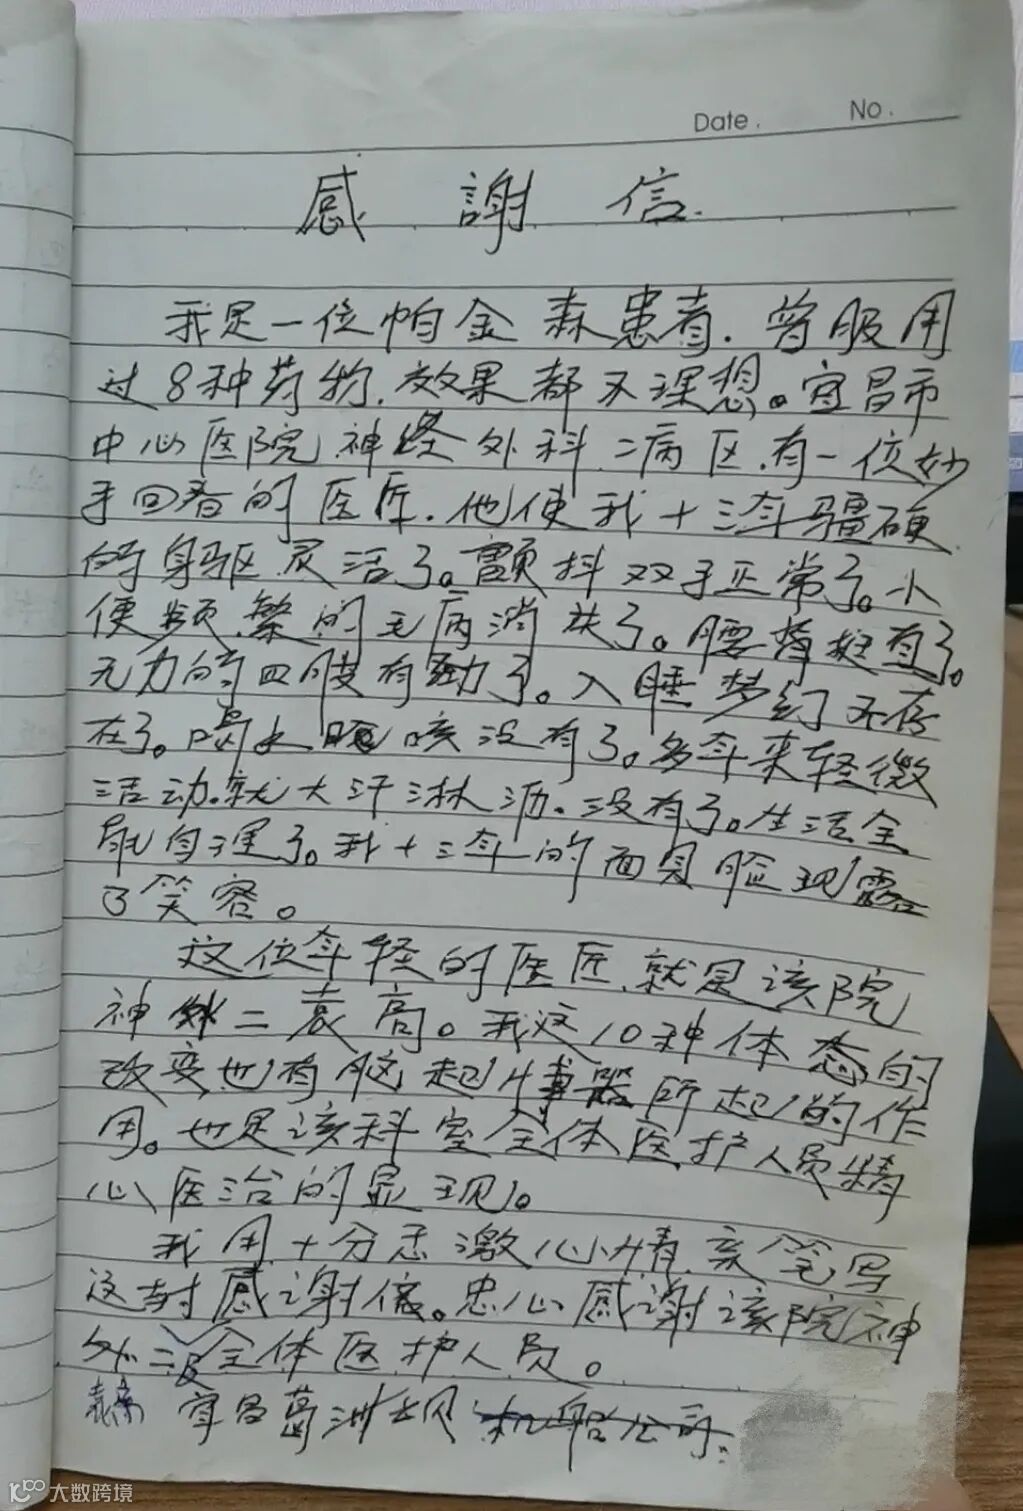 Date. No.
感謝信.
我是一位帕金森患者.曾服用
过8种药物.效果都不理想。宜昌市
中心医院神经外科二病区.有一位妙
手回春的医匠.他使我十三年疆硬
的身驱灵活了。颤抖双手正常了。小
便频繁的毛病消失了。腰背挺直了。
无力的四肢有劲了。入睡梦幻不存
在了。喝水呛咳没有了。多年来轻微
活动.就大汗淋沥.没有了。生活全
能自理了。我十三年的面具脸现露
了笑容。
这位年轻的医匠.就是该院
神外二袁高。我这10种体态的
改变也有脑起博器所起的作
用。也是该科室全体医护人员精
心医治的显现。
我用十分感激心情.亲笔写
这封感谢信。忠心感谢该院神
外二及全体医护人员。
袁高 宜昌葛洲坝机船公司.
大数跨境